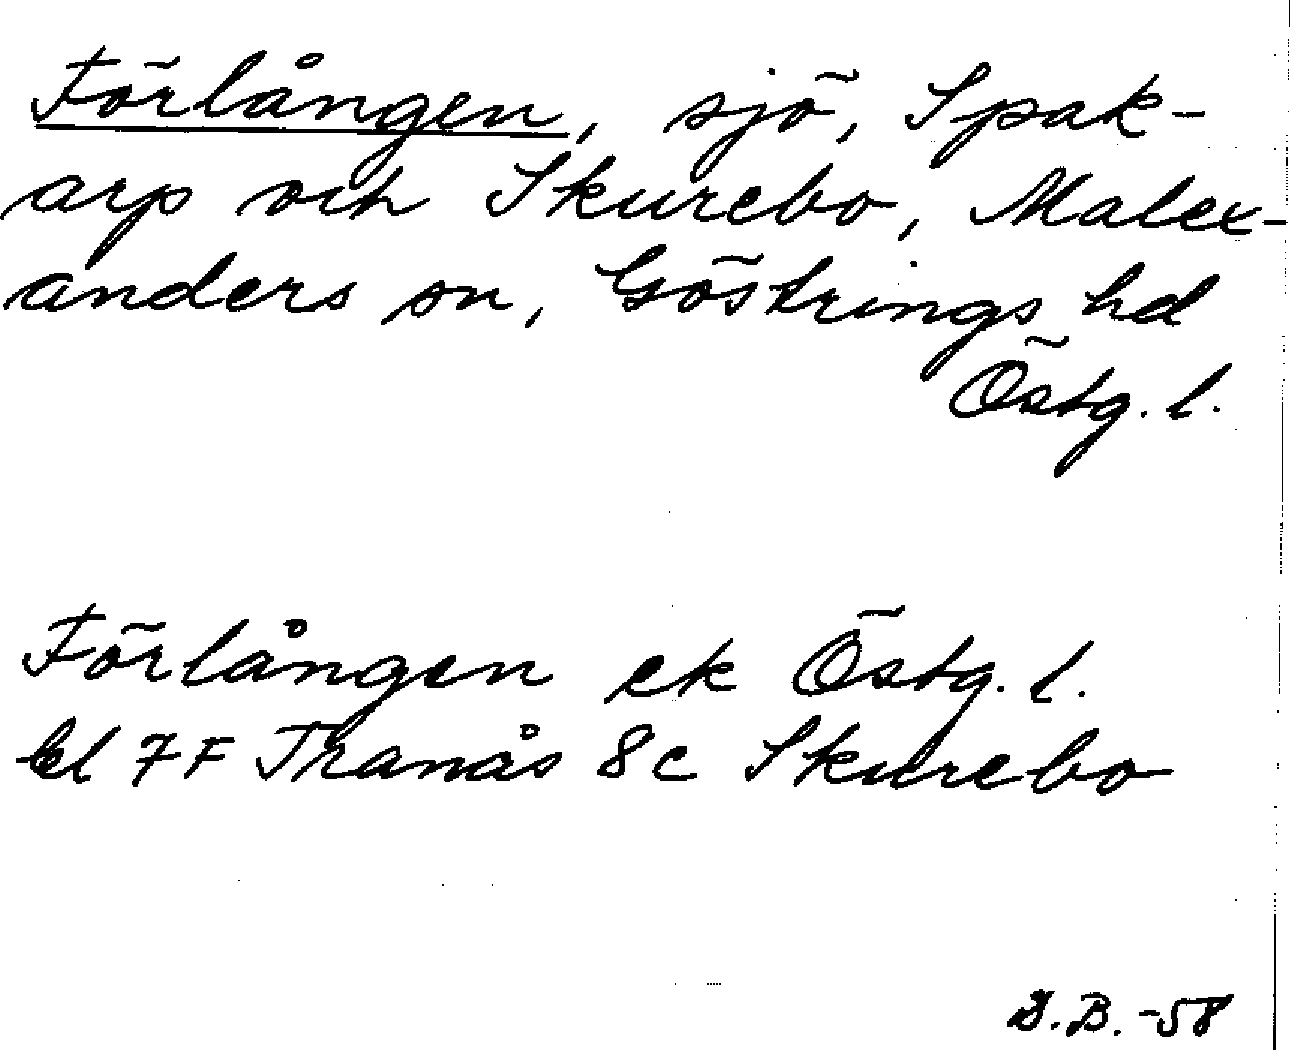 Förlången, sjö, Spak-
arp och Skurebo, Malex-
anders sn, Göstrings hd
Östg. l.
Förlången ek Östg. l.
bl 7F Tranås 8c Skurebo
B. -58